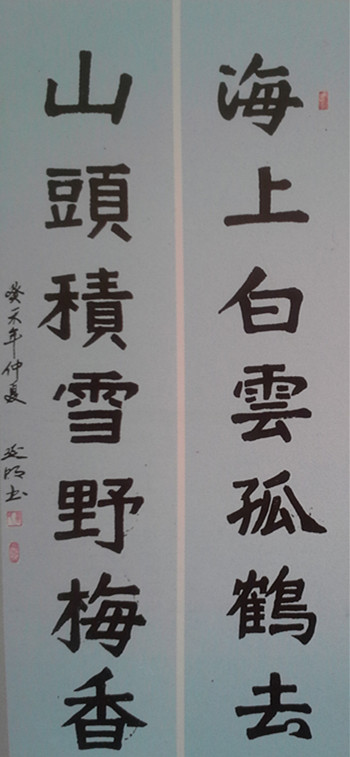 海上白雲孤鶴去
山頭積雪野梅香
癸未年仲夏